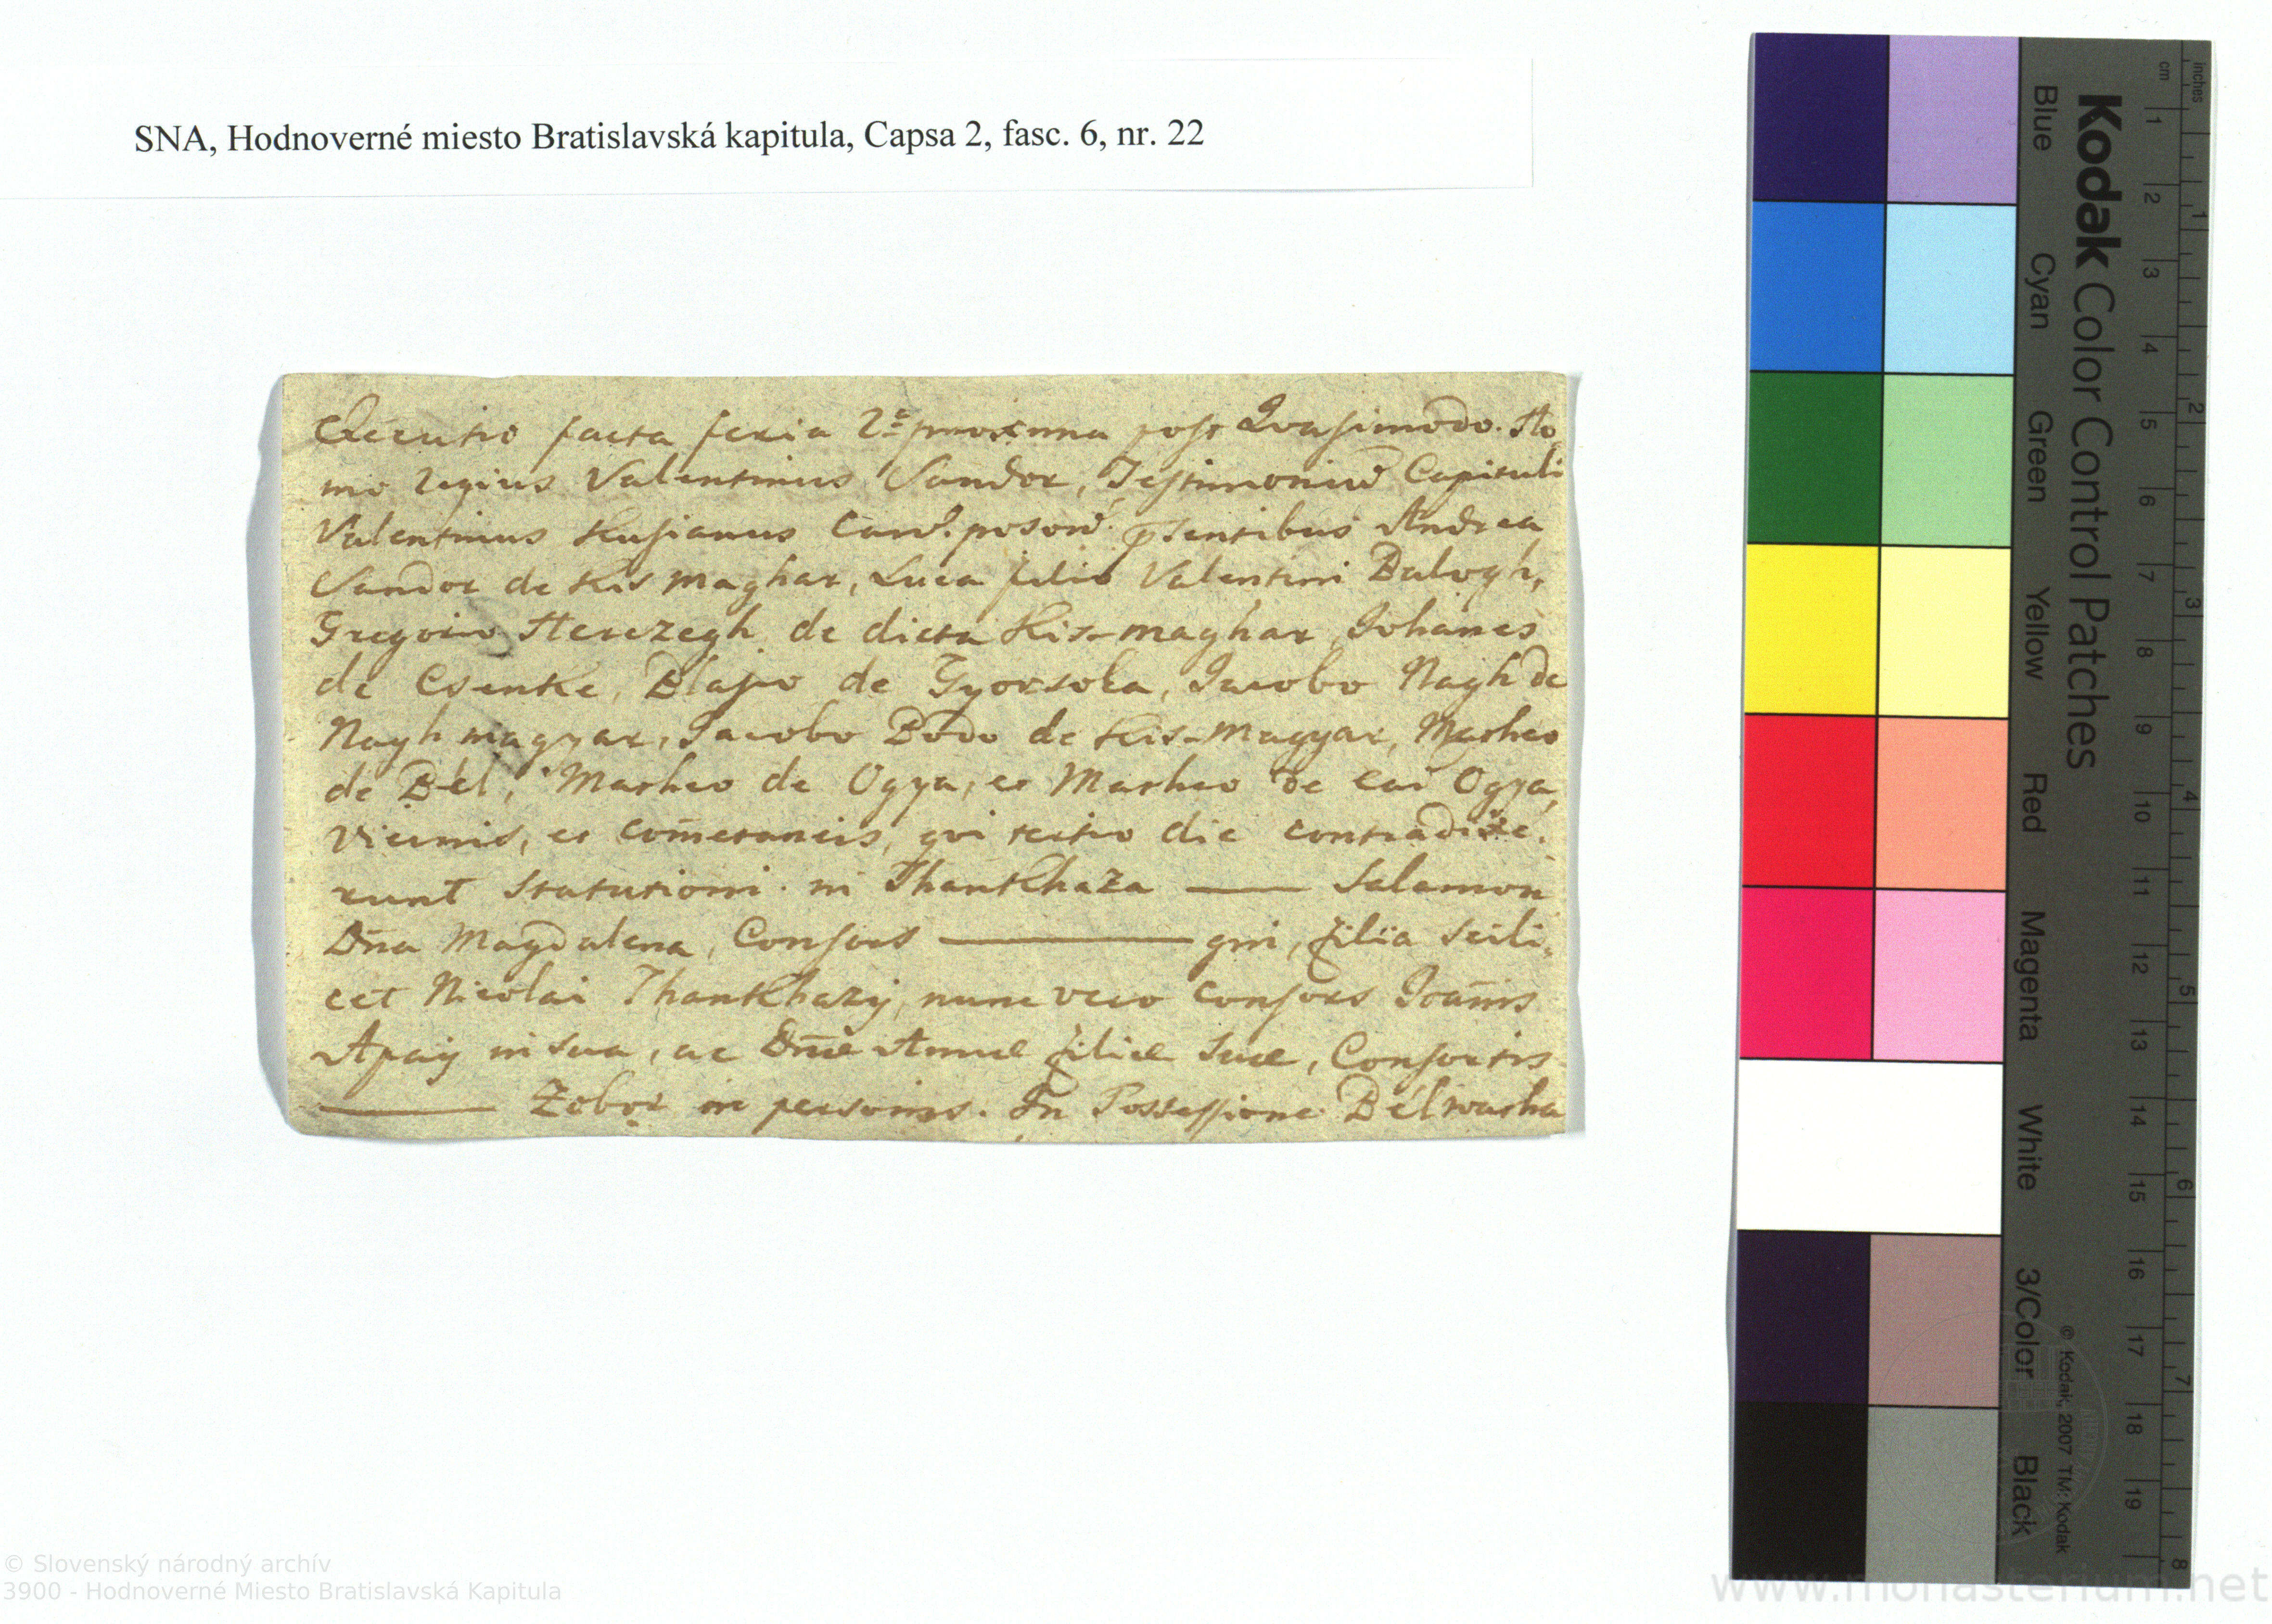 SNA, Hodnoverné miesto Bratislavská kapitula, Capsa 2, fasc. 6, nr. 22
Executio facta feria 2ª proxima post Quasimodo. Ho¸
mo regius Valentinus Sandor, Testimoniū Capituli
Valentinus Kusianus Cand. posoń. p̄sentibus Andrea
Sandor de Kis maghar, Luca filio Valentini Balogh,
Gregorio Herczegh de dicta Kis-maghar Johanes
de Csenke, Blasio de Gyorsoka, Jacobo Nagh de
Nagh magyar, Jacobo Bodo de Kis-Magyar, Matheo
de Bél, Matheo de Ogya, et Matheo de ead Ogya,
vicinis, et com̄etaneis, qvi tertio die contradixe.
runt Statutioni. in Thankhaza —— Salamon
Dn̄a Magdalena, Consors ———— gni, filia scili¸
cet Nicolai Thankhazÿ, nunc vero consors Joan̄is
Apaÿ in sua, ac Dn̄æ Annæ filiæ suæ, Consortis
——— Zobor in personis. In Possessione Bélwatha
Kodak Color Control Patches
Blue Cyan Green Yellow Red Magenta White 3/Color Black
cm 1 2 3 4 5 6 7 8 9 10 11 12 13 14 15 16 17 18 19
inches 1 2 3 4 5 6 7 8
© Kodak, 2007 TM: Kodak
© Slovenský národný archív
3900 - Hodnoverné Miesto Bratislavská Kapitula
www.monasterium.net